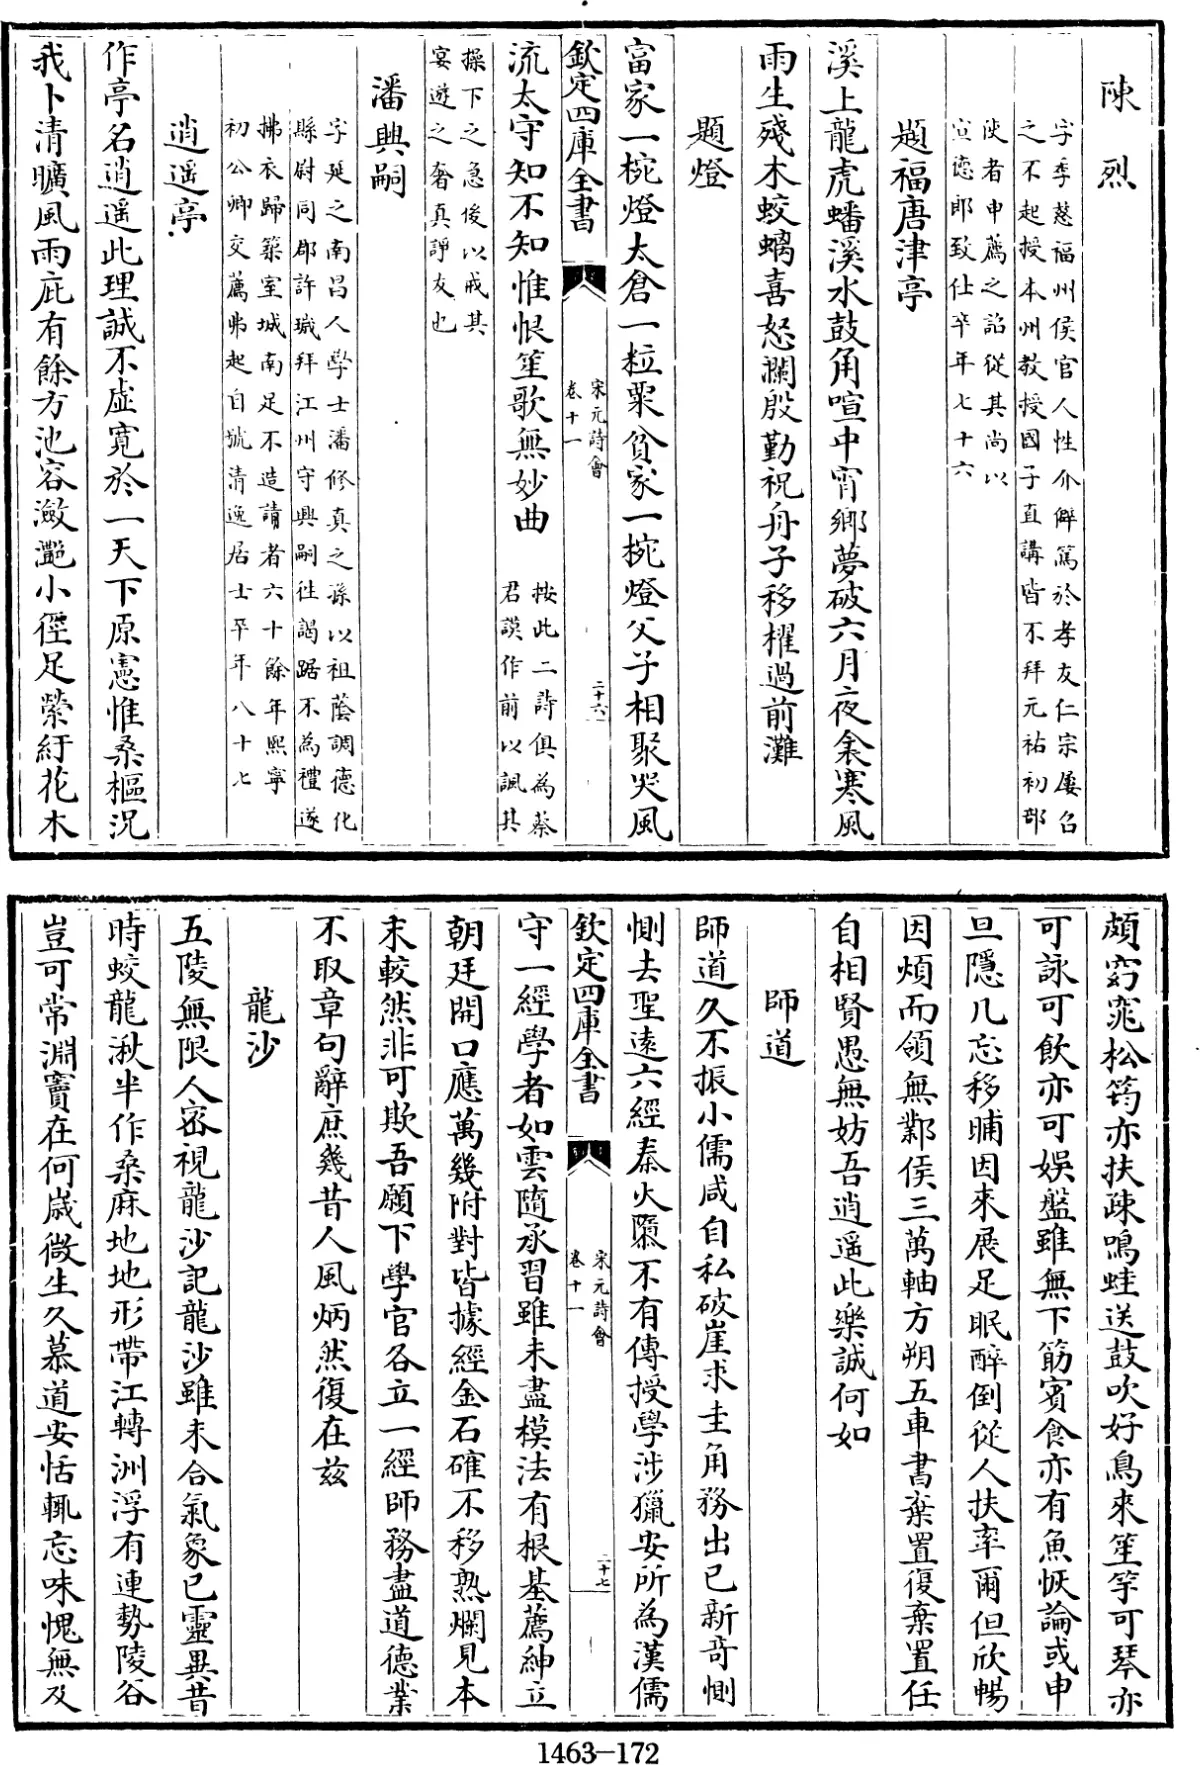 陳烈
字季慈福州侯官人性介僻篤於孝友仁宗屢召
之不起授本州教授國子直講皆不拜元祐初部
使者申薦之詔從其尚以
宣德郎致仕卒年七十六
題福唐津亭
溪上龍虎蟠溪水鼓角喧中宵鄉夢破六月夜衾寒風
雨生殘木蛟螭喜怒瀾殷勤祝舟子移櫂過前灘
題燈
富家一椀燈太倉一粒粟貧家一椀燈父子相聚哭風
欽定四庫全書
宋元詩會
卷十一
二十六
流太守知不知惟恨笙歌無妙曲
按此二詩俱為蔡
君謨作前以諷其
操下之急後以戒其
宴遊之奢真諍友也
潘興嗣
字延之南昌人學士潘修真之孫以祖蔭調德化
縣尉同郡許瑊拜江州守興嗣往謁踞不為禮遂
拂衣歸築室城南足不造請者六十餘年熙寧
初公卿交薦弗起自號清逸居士卒年八十七
逍遥亭
作亭名逍遥此理誠不虛寬於一天下原憲惟桑樞況
我卜清曠風雨庇有餘方池容瀲灔小徑足縈紆花木
頗窈窕松筠亦扶疎鳴蛙送鼓吹好鳥來笙竽可琴亦
可詠可飲亦可娛盤雖無下筯賓食亦有魚恢論或申
旦隱几忘移晡因來展足眠醉倒從人扶率爾但欣暢
因煩而領無鄴侯三萬軸方朔五車書棄置復棄置任
自相賢愚無妨吾逍遥此樂誠何如
師道
師道久不振小儒咸自私破崖求圭角務出己新奇惻
惻去聖遠六經秦火隳不有傳授學涉獵安所為漢儒
欽定四庫全書
宋元詩會
卷十一
二十七
守一經學者如雲隨承習雖未盡模法有根基薦紳立
朝廷開口應萬幾附對皆據經金石確不移熟爛見本
末較然非可欺吾願下學官各立一經師務盡道德業
不取章句辭庶幾昔人風炳然復在茲
龍沙
五陵無限人密視龍沙記龍沙雖未合氣象已靈異昔
時蛟龍湫半作桑麻地地形帶江轉洲浮有連勢陵谷
豈可常淵竇在何歲微生久慕道安恬輒忘味愧無及
1463-172